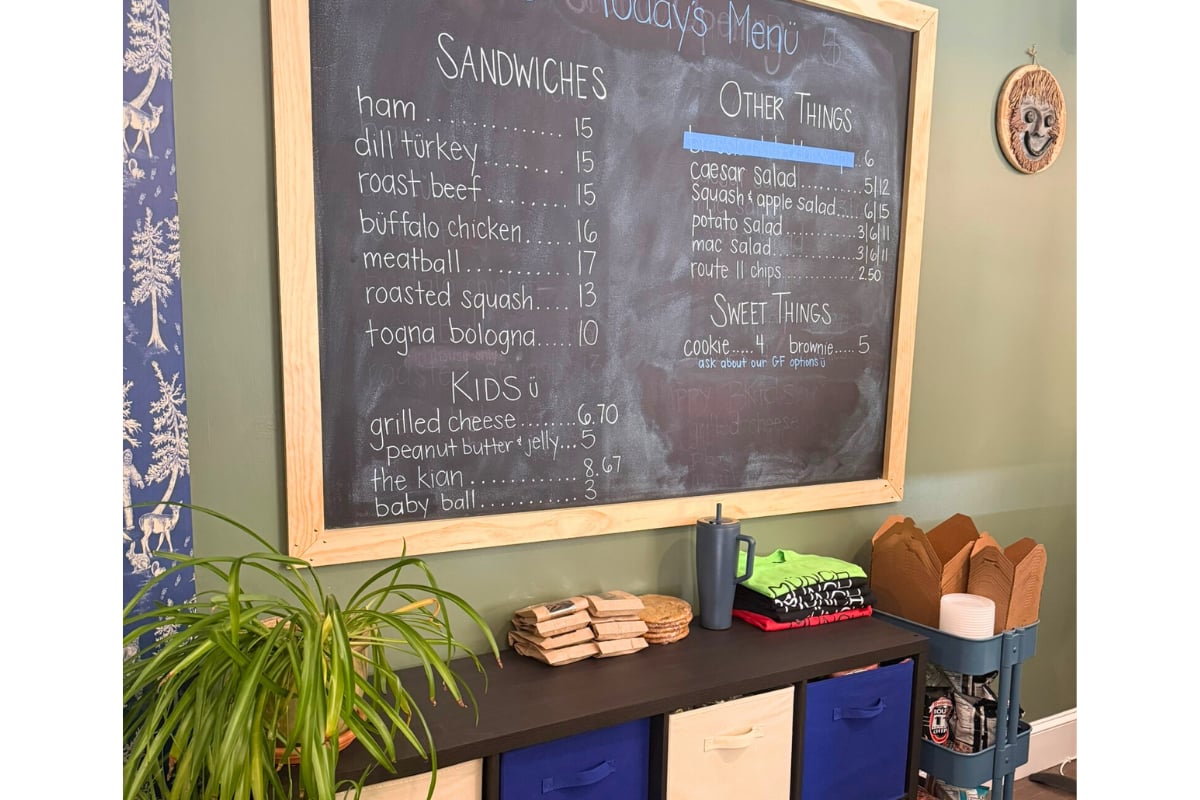 Today's Menü
SANDWICHES
ham ............... 15
dill türkey ....... 15
roast beef ........ 15
büffalo chicken ..... 16
meatball ........... 17
roasted squash .... 13
togna bologna ..... 10
KIDS ü
grilled cheese ........ 6.70
peanut butter & jelly ... 5
the kian ............ 8.67
baby ball ........... 3
OTHER THINGS
.. 6
caesar salad .......... 5|12
squash & apple salad .... 6|15
potato salad ........... 3|6|11
mac salad ............. 3|6|11
route 11 chips ........... 2.50
SWEET THINGS
cookie ..... 4 brownie ..... 5
ask about our GF options ü
MÜNCH